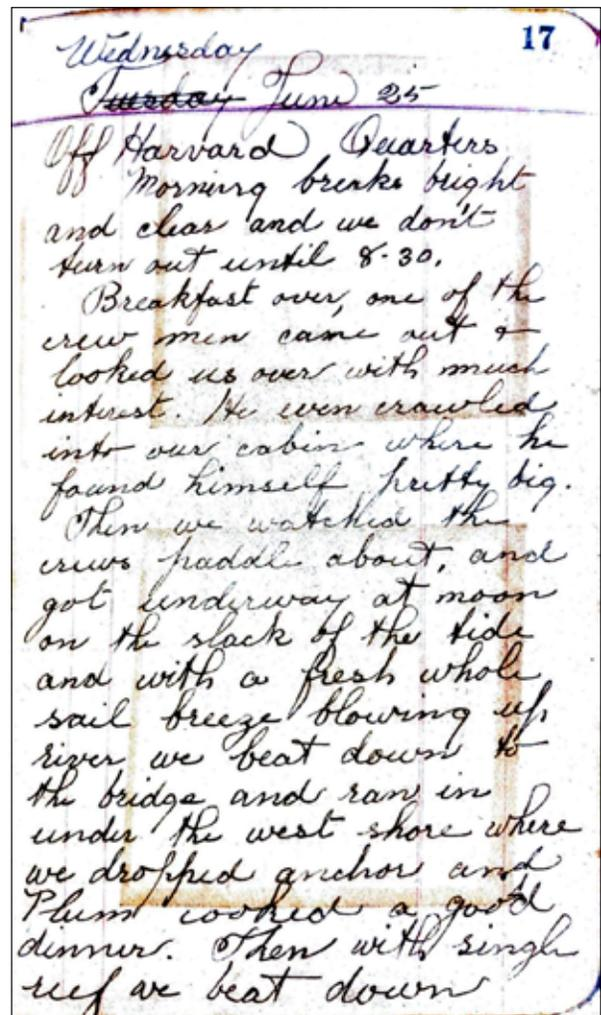 17
Wednesday
Tuesday June 25
Off Harvard Quarters
Morning breaks bright
and clear and we don't
turn out until 8-30.
Breakfast over, one of the
crew men came out &
looked us over with much
interest. He even crawled
into our cabin where he
found himself pretty big.
Then we watched the
crews paddle about, and
got underway at moon
on the slack of the tide
and with a fresh whole
sail breeze blowing up
river we beat down to
the bridge and ran in
under the west shore where
we dropped anchor and
Plum cooked a good
dinner. Then with single
reef we beat down